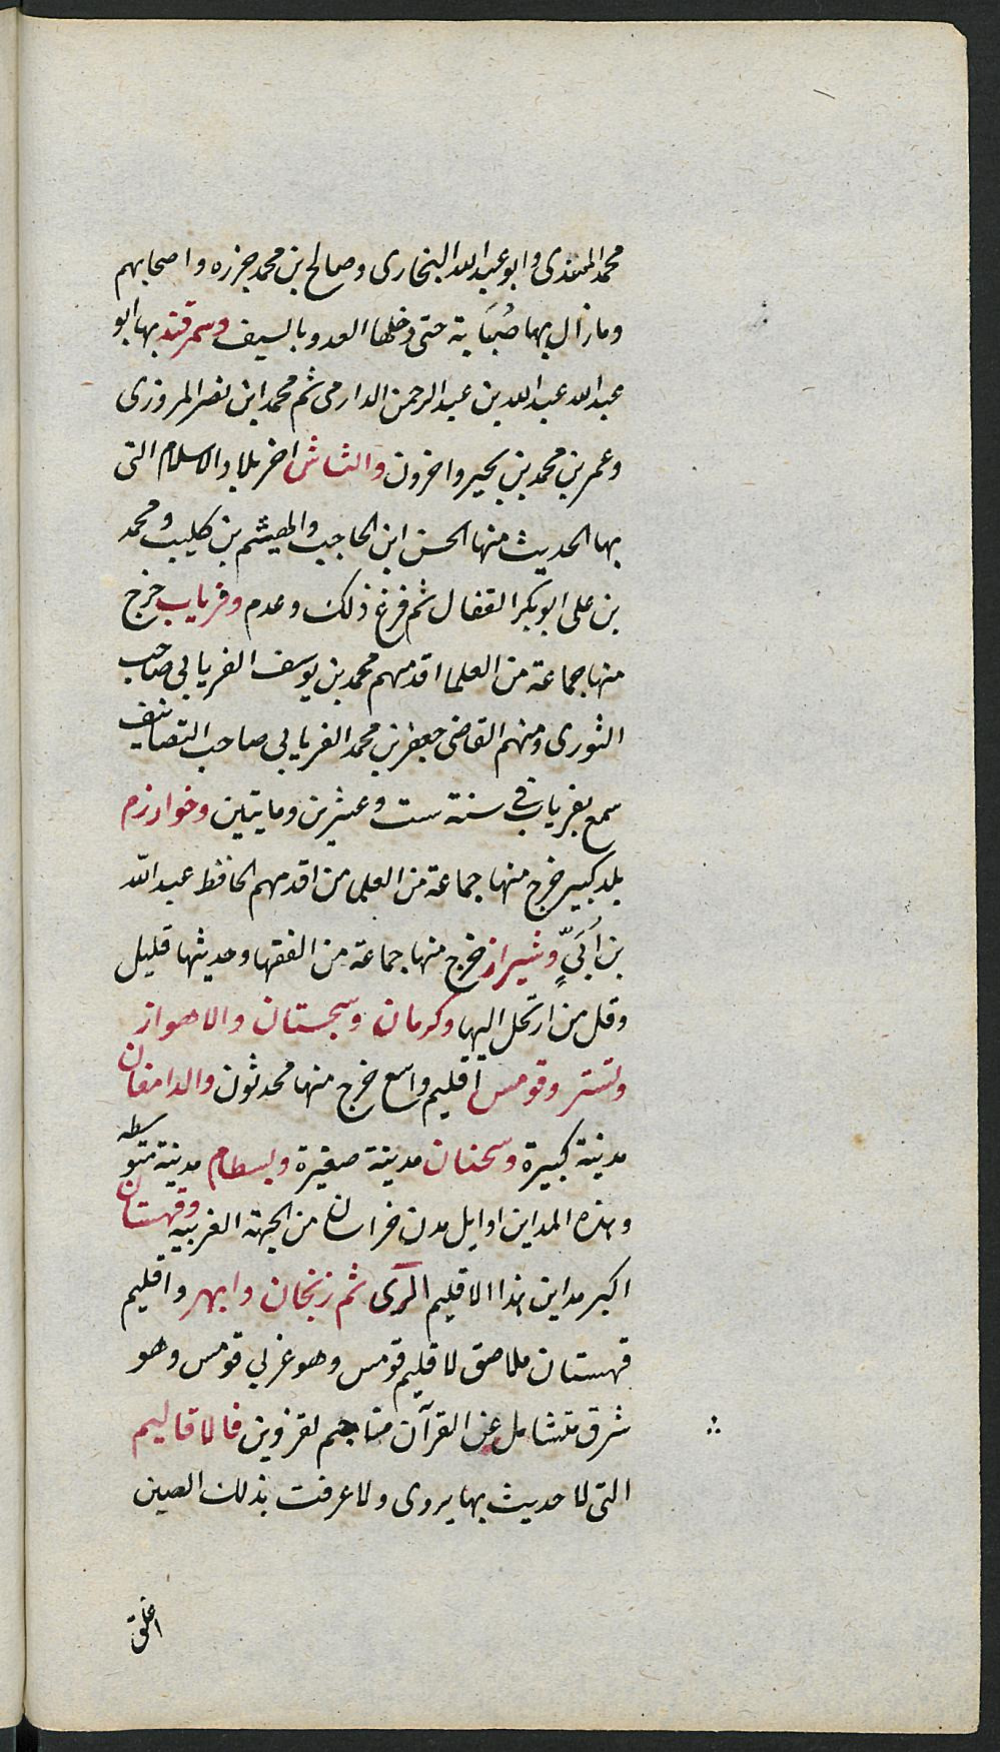 محمد المسندى وابو عبد الله البخارى وصالح بن محمد جزره واصحابهم
وما زال بها صُبَابة حتى دخلها العدو بالسيف وسمرقند بها ابو
عبد الله عبد الله بن عبد الرحمن الدارمى ثم محمد ابن نصر المروزى
وعمر بن محمد بن بجير واخرون والشاش اخر بلاد الاسلام التى
بها الحديث منها الحسن ابن الحاجب والهيثم بن كليب ومحمد
بن على ابو بكر القفال ثم فرغ ذلك وعدم وفرياب خرج
منها جماعة من العلما اقدمهم محمد بن يوسف الفريابى صاحب
الثورى ومنهم القاضى جعفر بن محمد الفريابى صاحب التصانيف
سمع بفرياب فى سنة ست وعشرين ومايتين وخوارزم
بلد كبير خرج منها جماعة من العلما من اقدمهم الحافظ عبد الله
بن اُبَىٍّ وشيراز خرج منها جماعة من الفقها وحديثها قليل
وقل من ارتحل اليها وكرمان وسجستان والاهواز
وتستر وقومس اقليم واسع خرج منها محدثون والدامغان
مدينة كبيرة وسمنان مدينة صغيرة وبسطام مدينة متوسطه
وهذه المداين اوايل مدن خراسان من الجهة الغربيه وقهستان
اكبر مداين هذا الاقليم الرى ثم زنجان وابهر واقليم
قهستان ملاصق لاقليم قومس وهو غربى قومس وهو
شرق متشامل عن القرآن متاجم لقزوين فالاقاليم
التى لا حديث بها يروى ولا عرفت بذلك الصين
اغلق